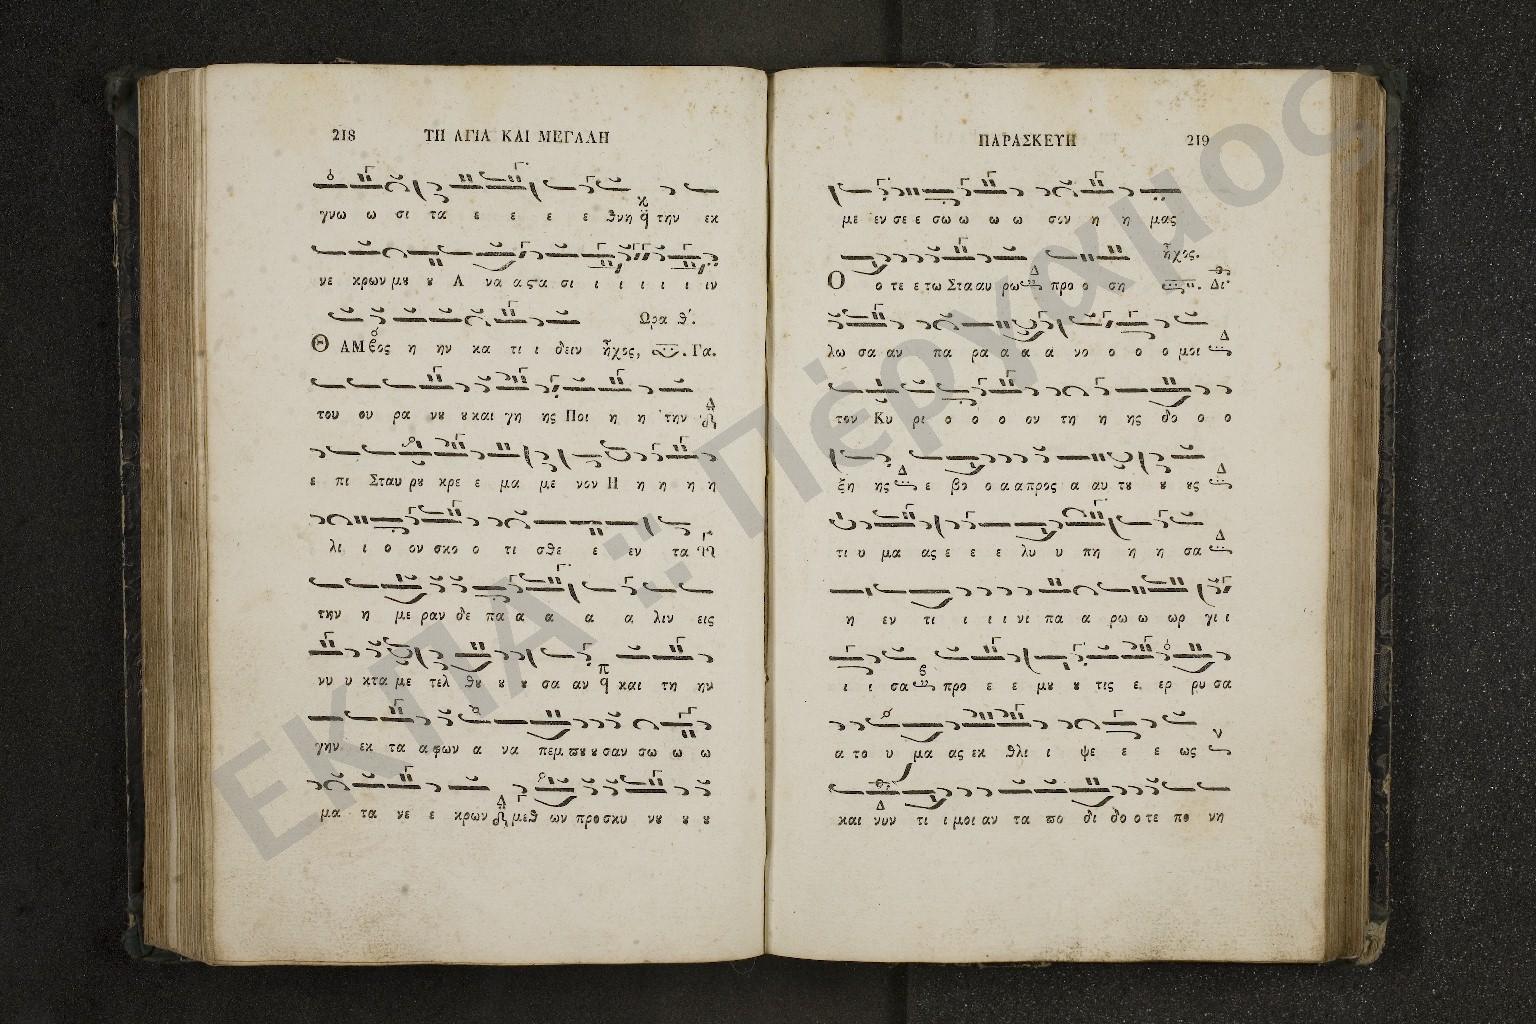 218 ΤΗ ΑΓΙΑ ΚΑΙ ΜΕΓΑΛΗ
γνω ω σι τα ε ε ε ε θνη την εκ
νε κρων μȣ ȣ Α να α ϛα σι ι ι ι ι ι ιν
Ωρα θ΄.
Θ ΑΜβος η ην κα τι ι δειν ἦχος, Γα.
του ου ρα νου ȣ και γη ης Ποι η η την
ε πι Σταυ ρȣ κρε ε μα με νον Η η η η η
λι ι ο ον σκο ο τι σθε ε εν τα
την η με ραν δε πα α α α α λιν εις
νυ υ κτα με τελ θȣ ȣ ȣ σα αν και τη ην
γην εκ τα α φων α να πεμ πȣ ȣ σαν σω ω ω
μα τα νε ε κρων μεθ ων προσκυ νȣ ȣ ȣ
ΠΑΡΑΣΚΕΥΗ 219
με εν σε ε σω ω ω ω σον η η μας
ἦχος.
Ο ο τε ε τω Στα αυ ρω προ ο ση Δι
λω σα αν πα ρα α α α νο ο ο ο μοι
τον Κυ ρι ο ο ο ον τη η ης δο ο ο
ξη ης ε βο ο α α προς α αυ τȣ ȣ ȣς
τι υ μα ας ε ε ε λυ υ πη η η σα
η εν τι ι ι ι νι πα α ρω ω ωρ γι ι
ι ι σα προ ε ε μȣ ȣ τις ε ερ ρυ σα
α το υ μα ας εκ θλι ι ψε ε ε ως
και νυν τι ι μοι αν τα πο δι δο ο τε πο νη
ΕΚΠΑ :: Πέργαμος